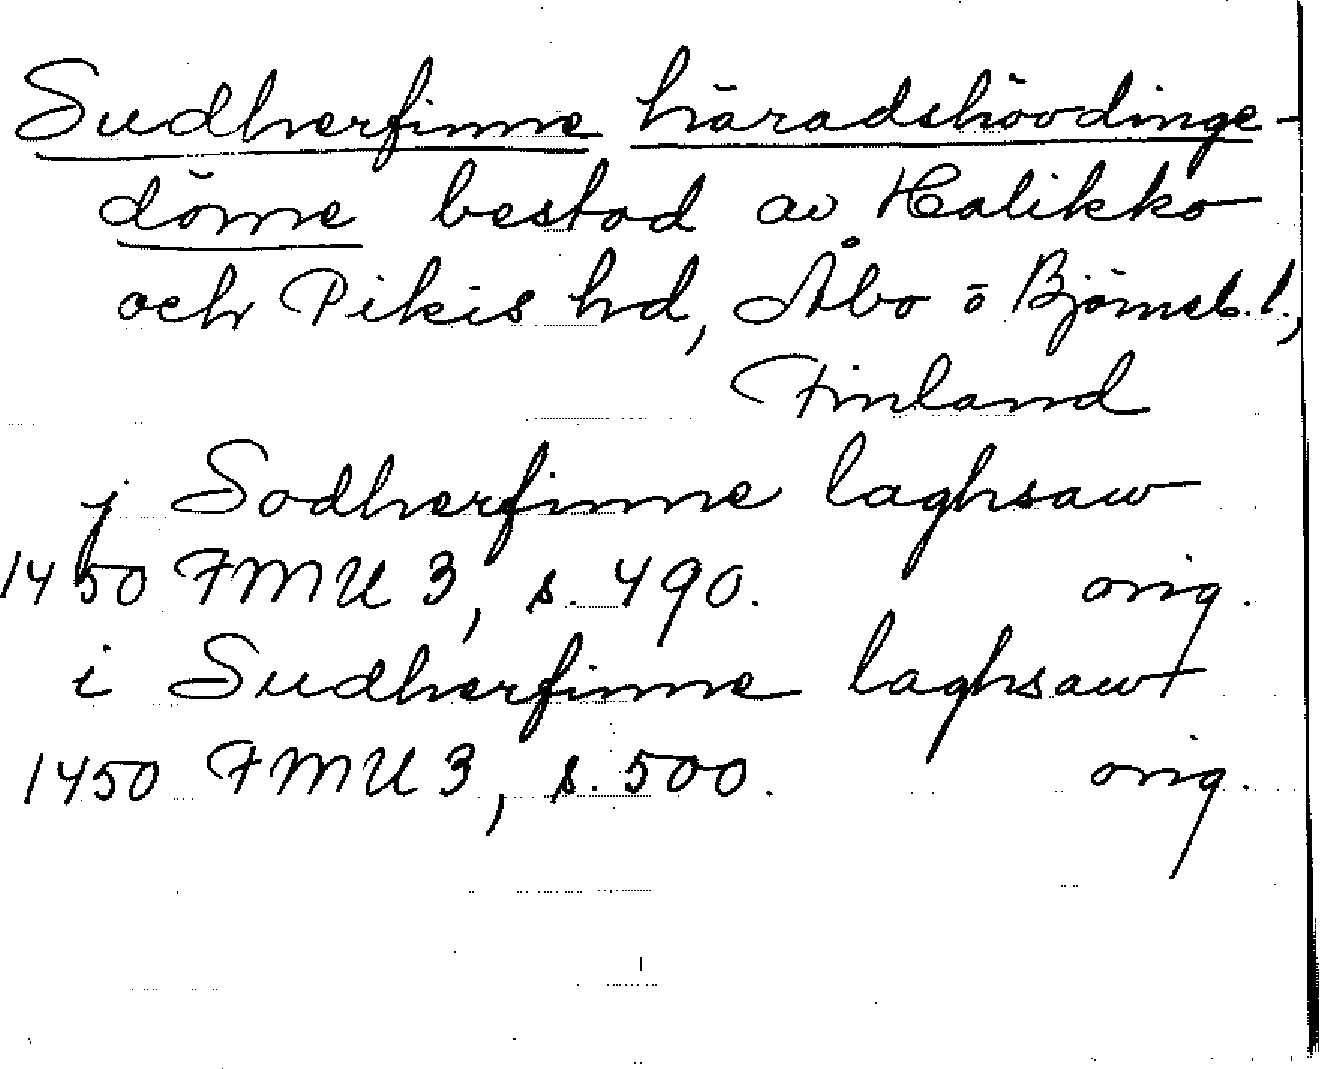 Sudherfinne häradshövdinge-
döme bestod av Halikko
och Pikis hd, Åbo o Björneb. l.,
Finland
j Sodherfinne laghsaw
1450 FMU 3, s. 490. orig.
i Sudherfinne laghsaw
1450 FMU 3, s. 500. orig.